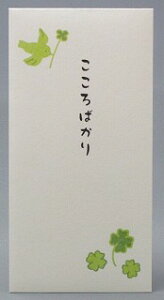 こころばかり